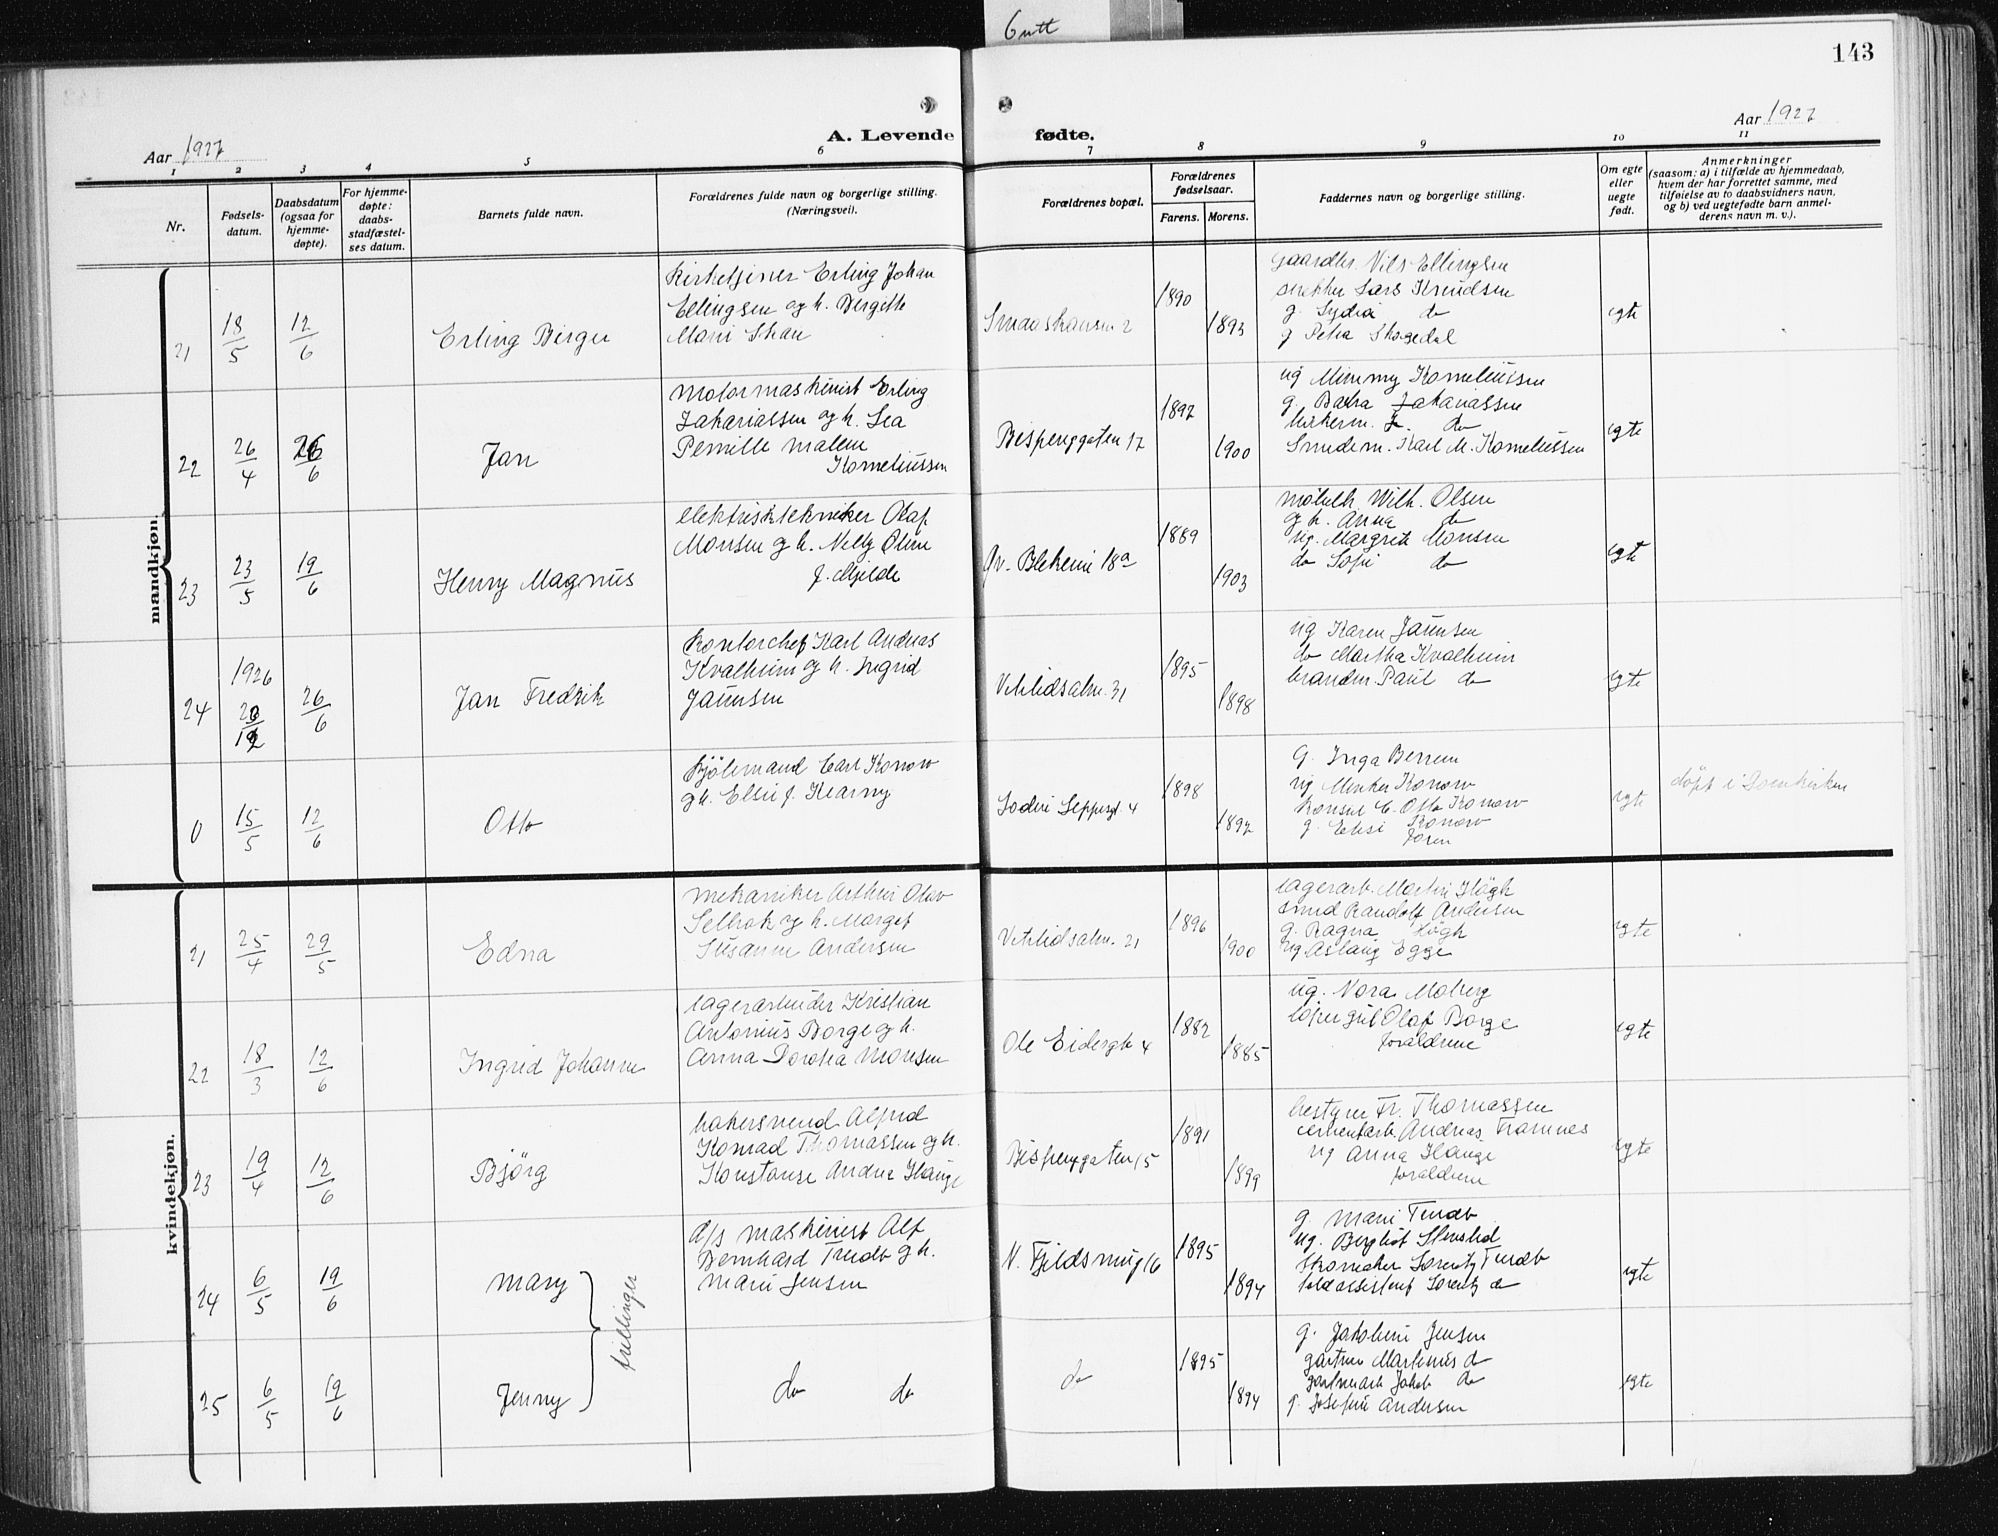 Gutt
143
Aar 1927
A. Levende fødte.
Aar 1927
1 2 3 4 5 6 7 8 9 10 11
Nr.
Fødsels-
datum.
Daabsdatum
(ogsaa for
hjemme-
døpte).
For hjemme-
døpte:
daabs-
stadfæstel-
ses datum.
Barnets fulde navn.
Forældrenes fulde navn og borgerlige stilling.
(Næringsvei).
Forældrenes bopæl.
Forældrenes
fødselsaar.
Farens. Morens.
Faddernes navn og borgerlige stilling.
Om egte
eller
uegte
født.
Anmerkninger
(saasom: a) i tilfælde av hjemmedaab,
hvem der har forrettet samme, med
tilføielse av to daabsvidners navn,
og b) ved uegtefødte barn anmel-
derens navn m. v.).
mandkjøn.
21
18/5
12/6
Erling Birger
Kirketjener Erling Johan
Ellingsen og h. Bergith
Marie Skar
1890
1893
Nils Ellingsen
snekker Lars Knudsen
g. Lydia do
g Petra Skogedal
egte
22
26/4
26/6
Jan
Motormaskinist Erling
Zakariassen og h. Lea
Pernille Malene
Korneliussen
Bispenggaten 17
1892
1900
ug Mimmy Korneliussen
g. Zakariassen
do
Smedem. Karl M. Korneliussen
egte
23
23/5
19/6
Henry Magnus
elektrisktekniker Olaf
Monsen og h. Nelly Oline
f. Mjelde
Øv. Blekevei 18a
1889
1903
Wilh. Olsen
og h. Anna do
ug. Margrete Monsen
do Sofie do
egte
24
1926
20/12
26/6
Jan Fredrik
Kontorchef Karl Andreas
Kvalheim og h. Ingrid
Jaunsen
Vetrlidsalm. 31
1895
1898
ug Karen Jaunsen
do Martha Kvalheim
brandm. Paul do
egte
0
15/5
12/6
Otto
Kjølemand Carl Konow
og h. Elsie f. Kearny
4
1898
1892
g. Inga Berren
ug Minken Konow
Konsul C. Otto Konow
g. Konow
egte
døpt i Domkirken
kvindekjøn.
21
25/4
29/5
Edna
mekaniker Arthur Olav
og h. Margot
Susanne Andersen
Vetrlidsalm. 21
1896
1900
lagerarb. Martin Høgh
smed Randolf Andersen
g. Ragna Høgh
ug. Aslaug Egge
egte
22
18/3
12/6
Ingrid Johanne
lagerarbeider Kristian
Antonius Borge og h.
Anna Dorothea Monsen
4
1882
1885
ug. Nora Moberg
Olaf Borge
forældrene
egte
23
19/4
12/6
Bjørg
bakersvend Alfred
Konrad Thomassen og h.
Konstanse Andrea Hauge
Bispenggaten 15
1891
1899
bestyrer Fr. Thomassen
cementarb. Andreas Framnes
ug Anna Hauge
forældrene
egte
24
6/5
19/6
Mary
trillinger
d/s maskinist Alf
Bernhard Tvedt og h.
Marie Jensen
N. Fjeldsmug 16
1895
1894
g. Marie Tvedt
ug. Bergliot
Skomaker Lorentz Tvedt
toldassistent Lorentz do
egte
25
6/5
19/6
Jenny
do do
do
1895
1894
g. Jakobine Jensen
gartner Martinus do
gartnerarb Jakob do
g. Josefine Andersen
egte